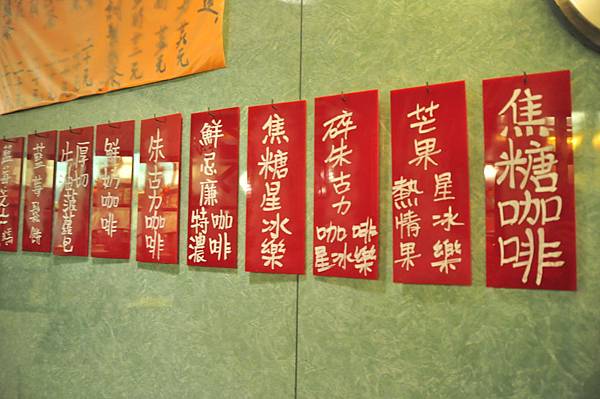 焦糖咖啡
芒果
熱情果
星冰樂
碎朱古力
咖啡
星冰樂
焦糖星冰樂
鮮忌廉
特濃
咖啡
朱古力咖啡
鮮奶咖啡
厚切
牛油菠蘿包
藍莓鬆餅